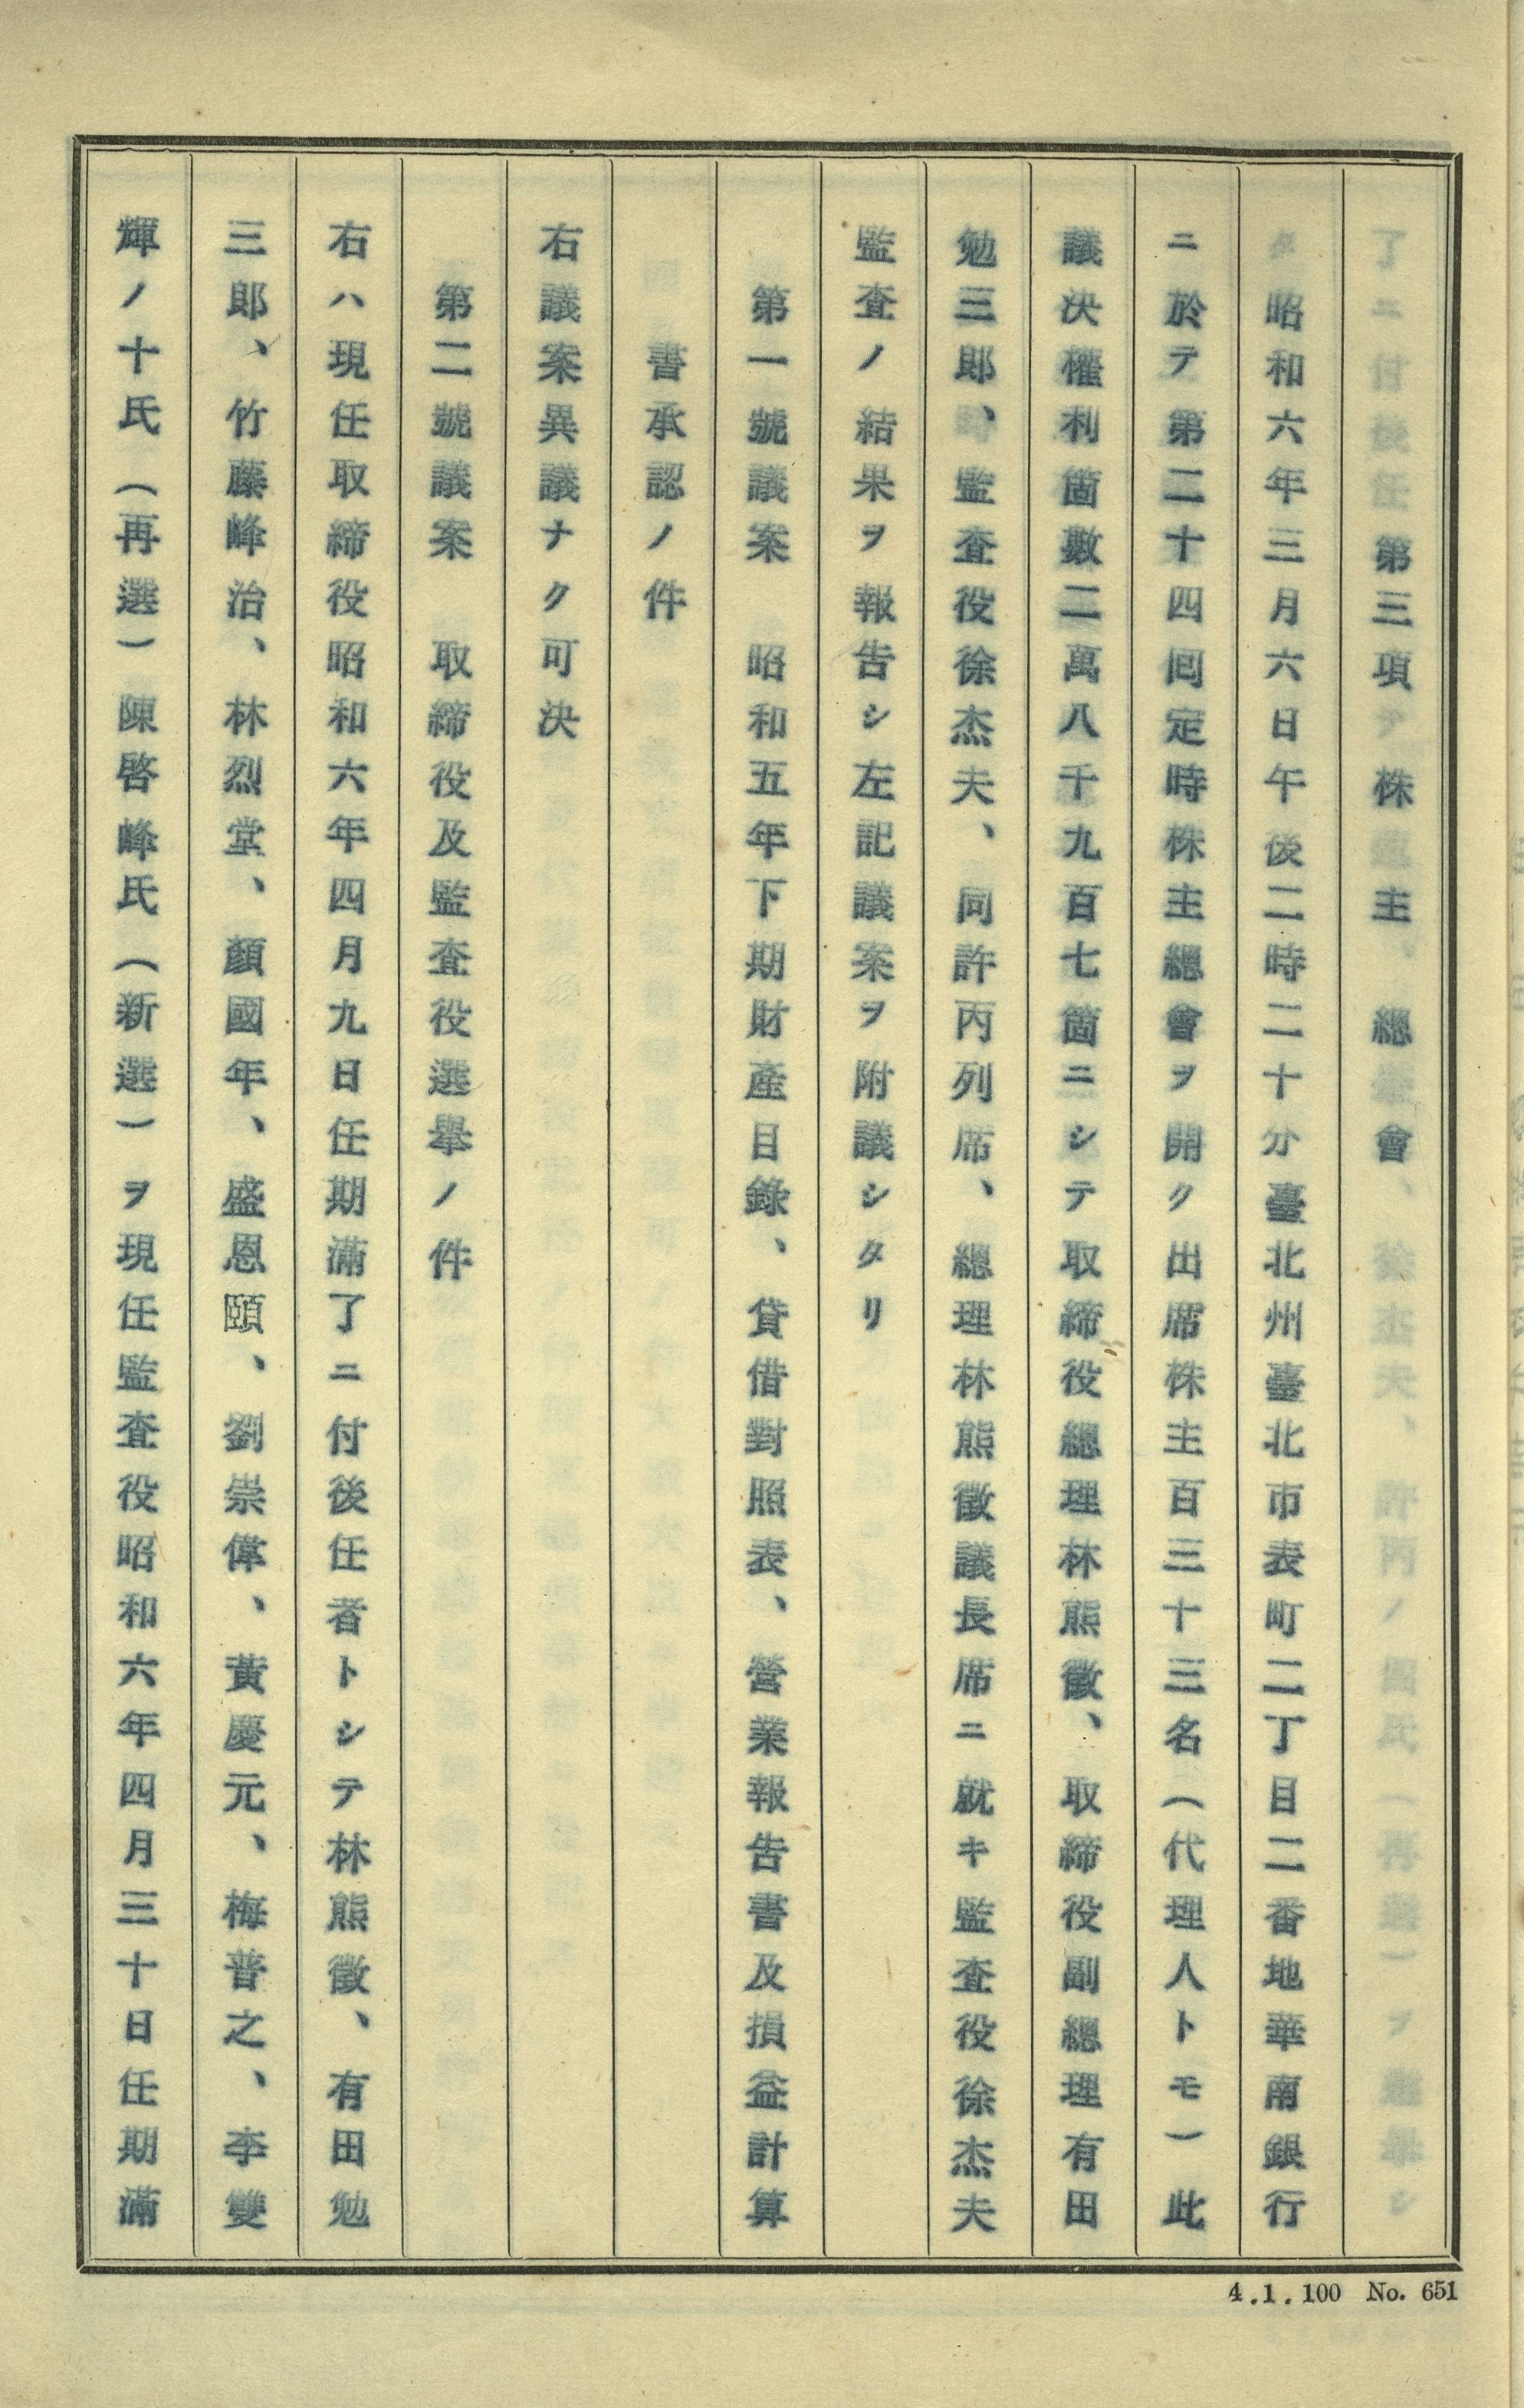 第三項 株主總會
昭和六年三月六日午後二時二十分臺北州臺北市表町二丁目二番地華南銀行
ニ於テ第二十四囘定時株主總會ヲ開ク出席株主百三十三名(代理人トモ)此
議決權利箇數二萬八千九百七箇ニシテ取締役總理林熊徵、取締役副總理有田
勉三郎、監査役徐杰夫、同許丙列席、總理林熊徵議長席ニ就キ監査役徐杰夫
監査ノ結果ヲ報告シ左記議案ヲ附議シタリ
第一號議案 昭和五年下期財產目錄、貸借對照表、營業報告書及損益計算
書承認ノ件
右議案異議ナク可決
第二號議案 取締役及監査役選擧ノ件
右ハ現任取締役昭和六年四月九日任期滿了ニ付後任者トシテ林熊徵、有田勉
三郎、竹藤峰治、林烈堂、顏國年、盛恩頤、劉崇偉、黃慶元、梅普之、李雙
輝ノ十氏(再選)陳啓峰氏(新選)ヲ現任監査役昭和六年四月三十日任期滿
4.1.100 No. 651